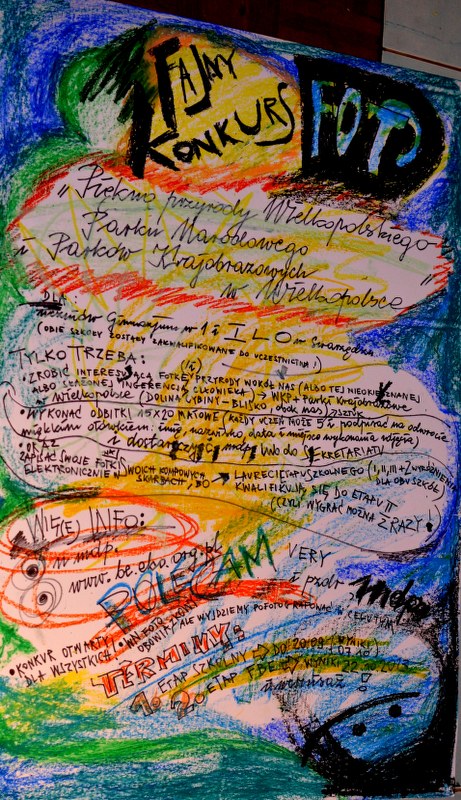 FAJNY
KONKURS
FOTO
"Piękno przyrody Wielkopolskiego
Parku Narodowego
i Parków Krajobrazowych
w Wielkopolsce"
DLA:
uczniów Gimnazjum nr 1 i I LO w Swarzędzu
(OBIE SZKOŁY ZOSTAŁY ZAKWALIFIKOWANE DO UCZESTNICTWA!)
TYLKO TRZEBA:
• ZROBIĆ INTERESUJĄCĄ FOTKĘ PRZYRODY WOKÓŁ NAS (ALBO TEJ NIEOKIEŁZNANEJ
ALBO SKAŻONEJ INGERENCJĄ CZŁOWIEKA) → WKP + Parki Krajobrazowe
w Wielkopolsce (DOLINA CYBINY - BLISKO, obok nas)
• WYKONAĆ ODBITKI 15x20 MATOWE (KAŻDY UCZEŃ MOŻE 5 i podpisać na odwrocie
miękkim ołówkiem: imię, nazwisko, data i miejsce wykonania zdjęcia)
i dostarczyć mdp do SEKRETARIATU
ORAZ
ZAPISAĆ SWOJE FOTKI
ELEKTRONICZNIE W SWOICH KOMPOWYCH
SKARBACH, BO → LAUREACI ETAPU SZKOLNEGO (I, II, III + WYRÓŻNIENIA
DLA OBU SZKÓŁ)
KWALIFIKUJĄ SIĘ DO ETAPU II
(CZYLI WYGRAĆ MOŻNA 2 RAZY!)
WIĘCEJ INFO:
u mdp.
www.be.eko.org.pl
POLECAM
VERY
i pzdr
• KONKUR OTWARTY
DLA WSZYSTKICH
ALE WYJDZIEMY POFOTOGRAFOWAĆ
TERMINY:
1. ETAP SZKOLNY → DO 20.09
2. ETAP → WYNIKI 22.10.2013